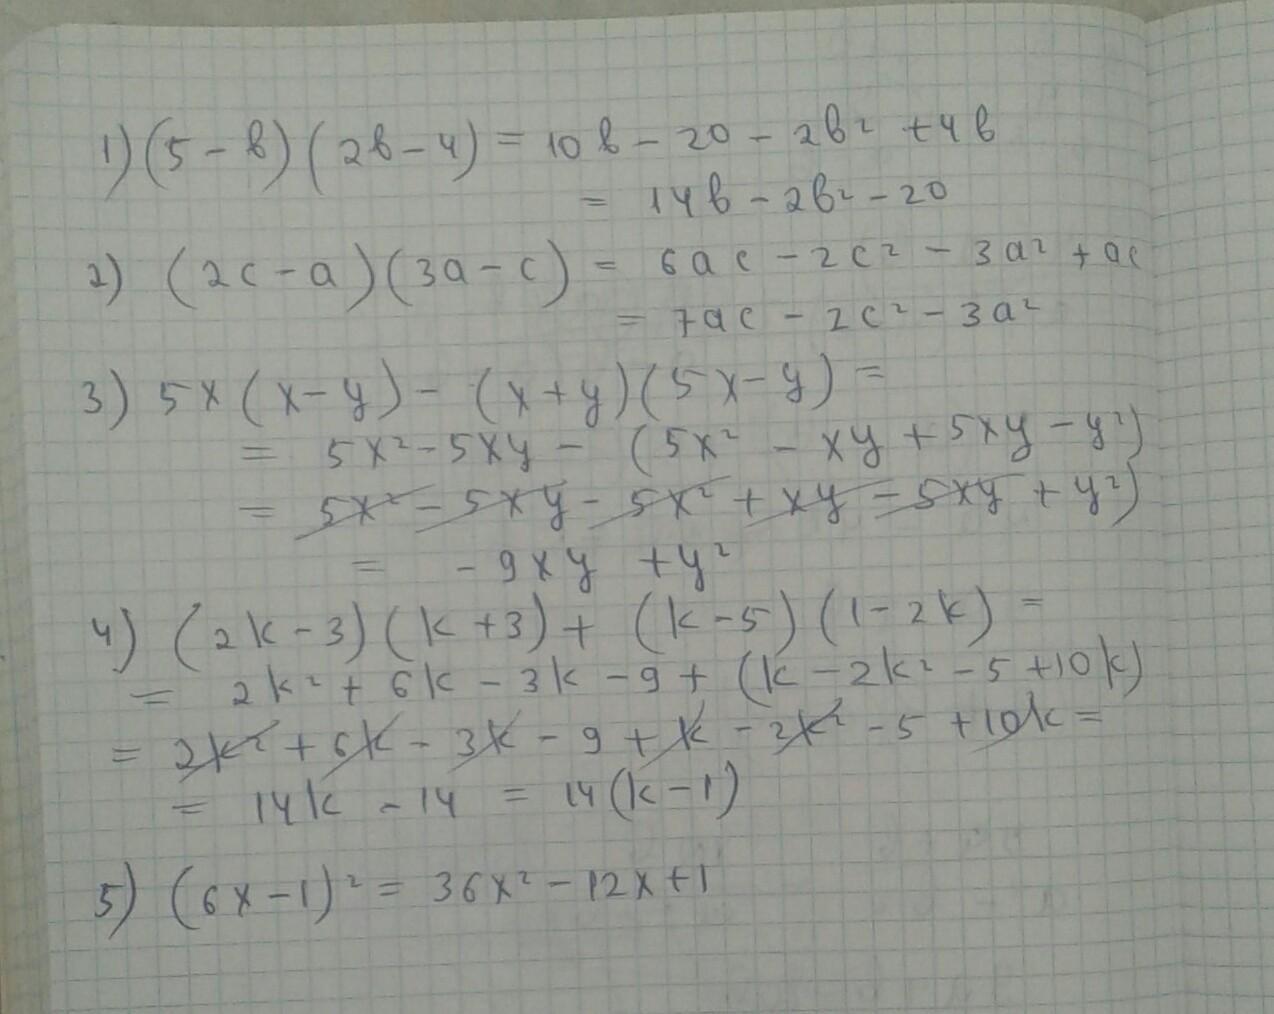 1) (5 - b) (2b - 4) = 10b - 20 - 2b² + 4b
= 14b - 2b² - 20
2) (2c - a)(3a - c) = 6ac - 2c² - 3a² + ac
= 7ac - 2c² - 3a²
3) 5x (x - y) - (x + y)(5x - y) =
= 5x² - 5xy - (5x² - xy + 5xy - y²)
= 5x² - 5xy - 5x² + xy - 5xy + y²)
= - 9xy + y²
4) (2k - 3)(k + 3) + (k - 5) (1 - 2k) =
= 2k² + 6k - 3k - 9 + (k - 2k² - 5 + 10k)
= 2k² + 6k - 3k - 9 + k - 2k² - 5 + 10k =
= 14k - 14 = 14(k - 1)
5) (6x - 1)² = 36x² - 12x + 1